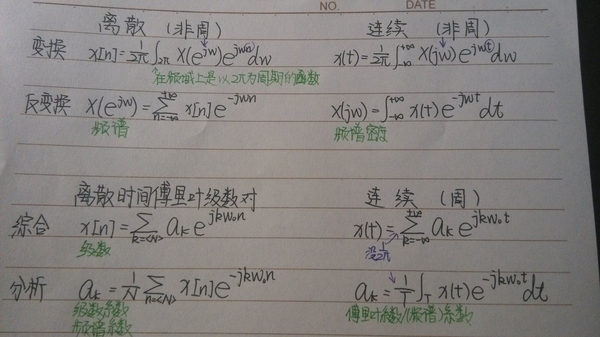 NO. DATE
离散 (非周) 连续 (非周)
变换 x[n]=1/2π ∫2π X(e^jw)e^jwn dw x(t)=1/2π ∫-∞^+∞ X(jw)e^jwt dw
在频域上是以2π为周期的函数
反变换 X(e^jw)=∑n=-∞^+∞ x[n]e^-jwn X(jw)=∫-∞^+∞ x(t)e^-jwt dt
频谱 频谱密度
离散时间傅里叶级数对 连续 (周)
综合 x[n]=∑k=<N> ak e^jkw₀n x(t)=∑k=-∞^+∞ ak e^jkw₀t
级数 没1/2π
分析 ak=1/N ∑n=<N> x[n]e^-jkw₀n ak=1/T ∫T x(t)e^-jkw₀t dt
级数系数 傅里叶级数/(频谱)系数
频谱系数